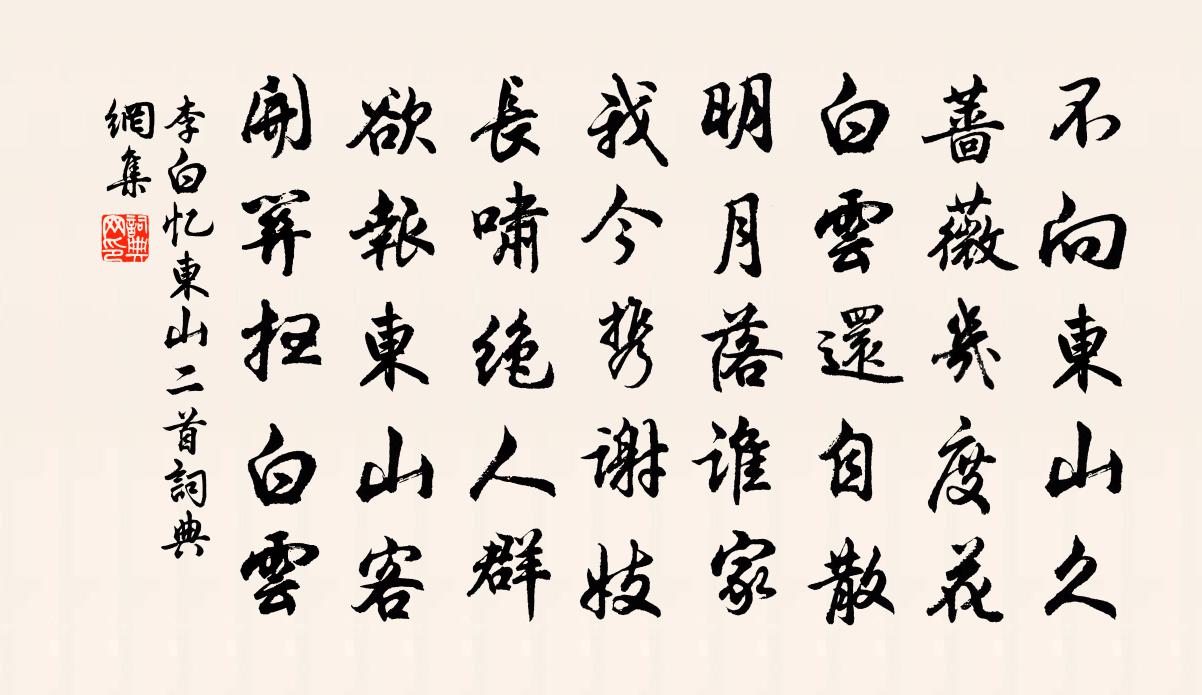 不向東山久
薔薇幾度花
白雲還自散
明月落誰家
我今携謝妓
長嘯绝人群
欲報東山客
開關掃白雲
李白忆東山二首詞典
網集
詞典網印